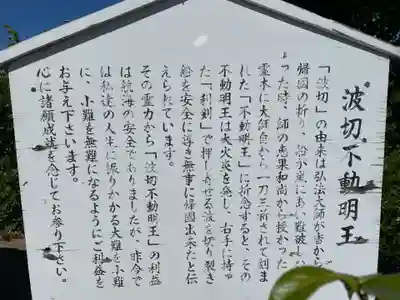 波切不動明王
「波切」の由来は弘法大師が唐から
帰国の折り、船が嵐にあい難破しか
った時、師の恵果和尚から授かった
霊木に大師自ら一刀三礼されて刻ま
れた「不動明王」に祈念すると、その
不動明王は大火炎を発し、右手に持っ
た「利剣」で押し寄せる波を切り裂き
船を安全に導き無事に帰国出来たと伝
えられています。
その霊力から「波切不動明王」の利益
は航海の安全でありましたが、昨今で
は私達の人生に振りかかる大難を小難
に、小難を無難になるようにご利益を
お与え下さいます。
心に諸願成満を念じてお参り下さい。